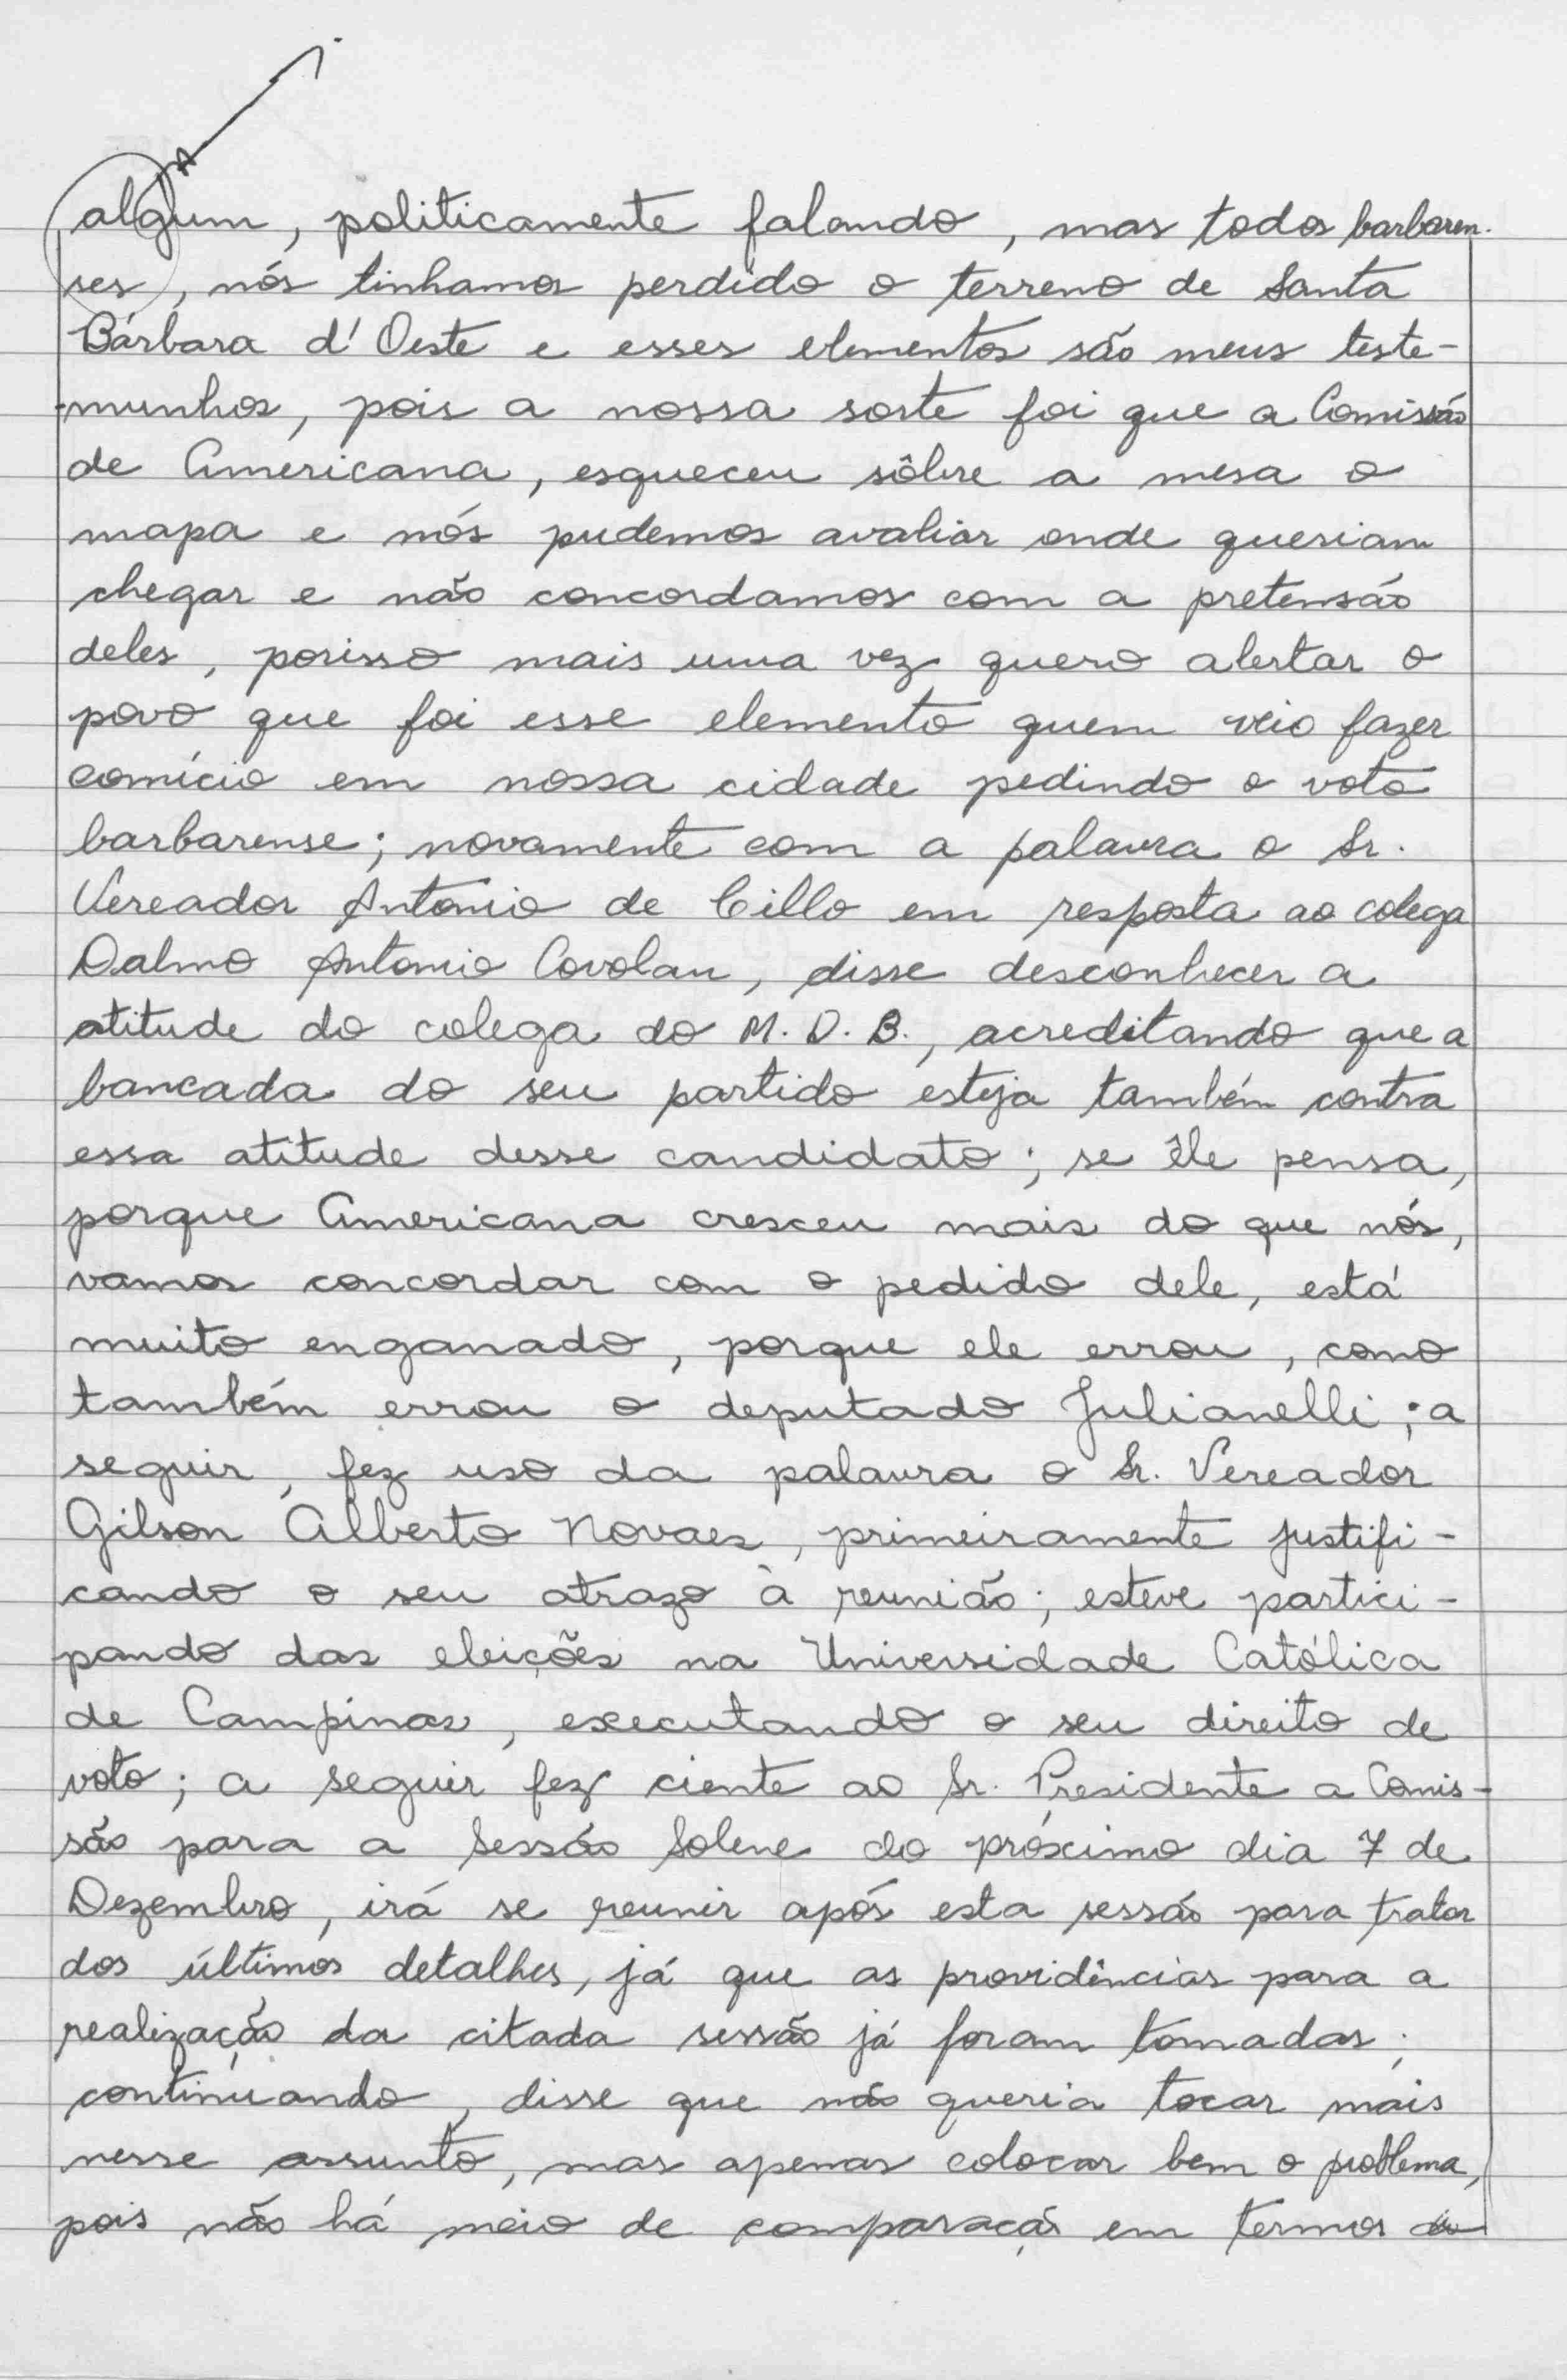 algum, politicamente falando, mas todos barbaren.
ses, nós tinhamos perdido o terreno de Santa
Bárbara d'Oeste e esses elementos são meus teste-
-munhos, pois a nossa sorte foi que a Comissão
de Americana, esqueceu sôbre a mesa o
mapa e nós pudemos avaliar onde queriam
chegar e não concordamos com a pretensão
deles, porisso mais uma vez quero alertar o
povo que foi esse elemento quem veio fazer
comício em nossa cidade pedindo o voto
barbarense; novamente com a palavra o Sr.
Vereador Antonio de Cillo em resposta ao colega
Dalmo Antonio Covolan, disse desconhecer a
atitude do colega do M.D.B., acreditando que a
bancada do seu partido esteja também contra
essa atitude desse candidato; se êle pensa,
porque Americana cresceu mais do que nós,
vamos concordar com o pedido dele, está
muito enganado, porque ele errou, como
também errou o deputado Julianelli; a
seguir, fez uso da palavra o Sr. Vereador
Gilson Alberto Novaes, primeiramente justifi-
cando o seu atrazo à reunião; esteve partici-
pando das eleições na Universidade Católica
de Campinas, executando o seu direito de
voto; a seguir fez ciente ao Sr. Presidente a Comis-
são para a Sessão Solene do próximo dia 7 de
Dezembro, irá se reunir após esta sessão para tratar
dos últimos detalhes, já que as providências para a
realização da citada sessão já foram tomadas;
continuando, disse que não queria tocar mais
nesse assunto, mas apenas colocar bem o problema,
pois não há meio de comparação em termos de